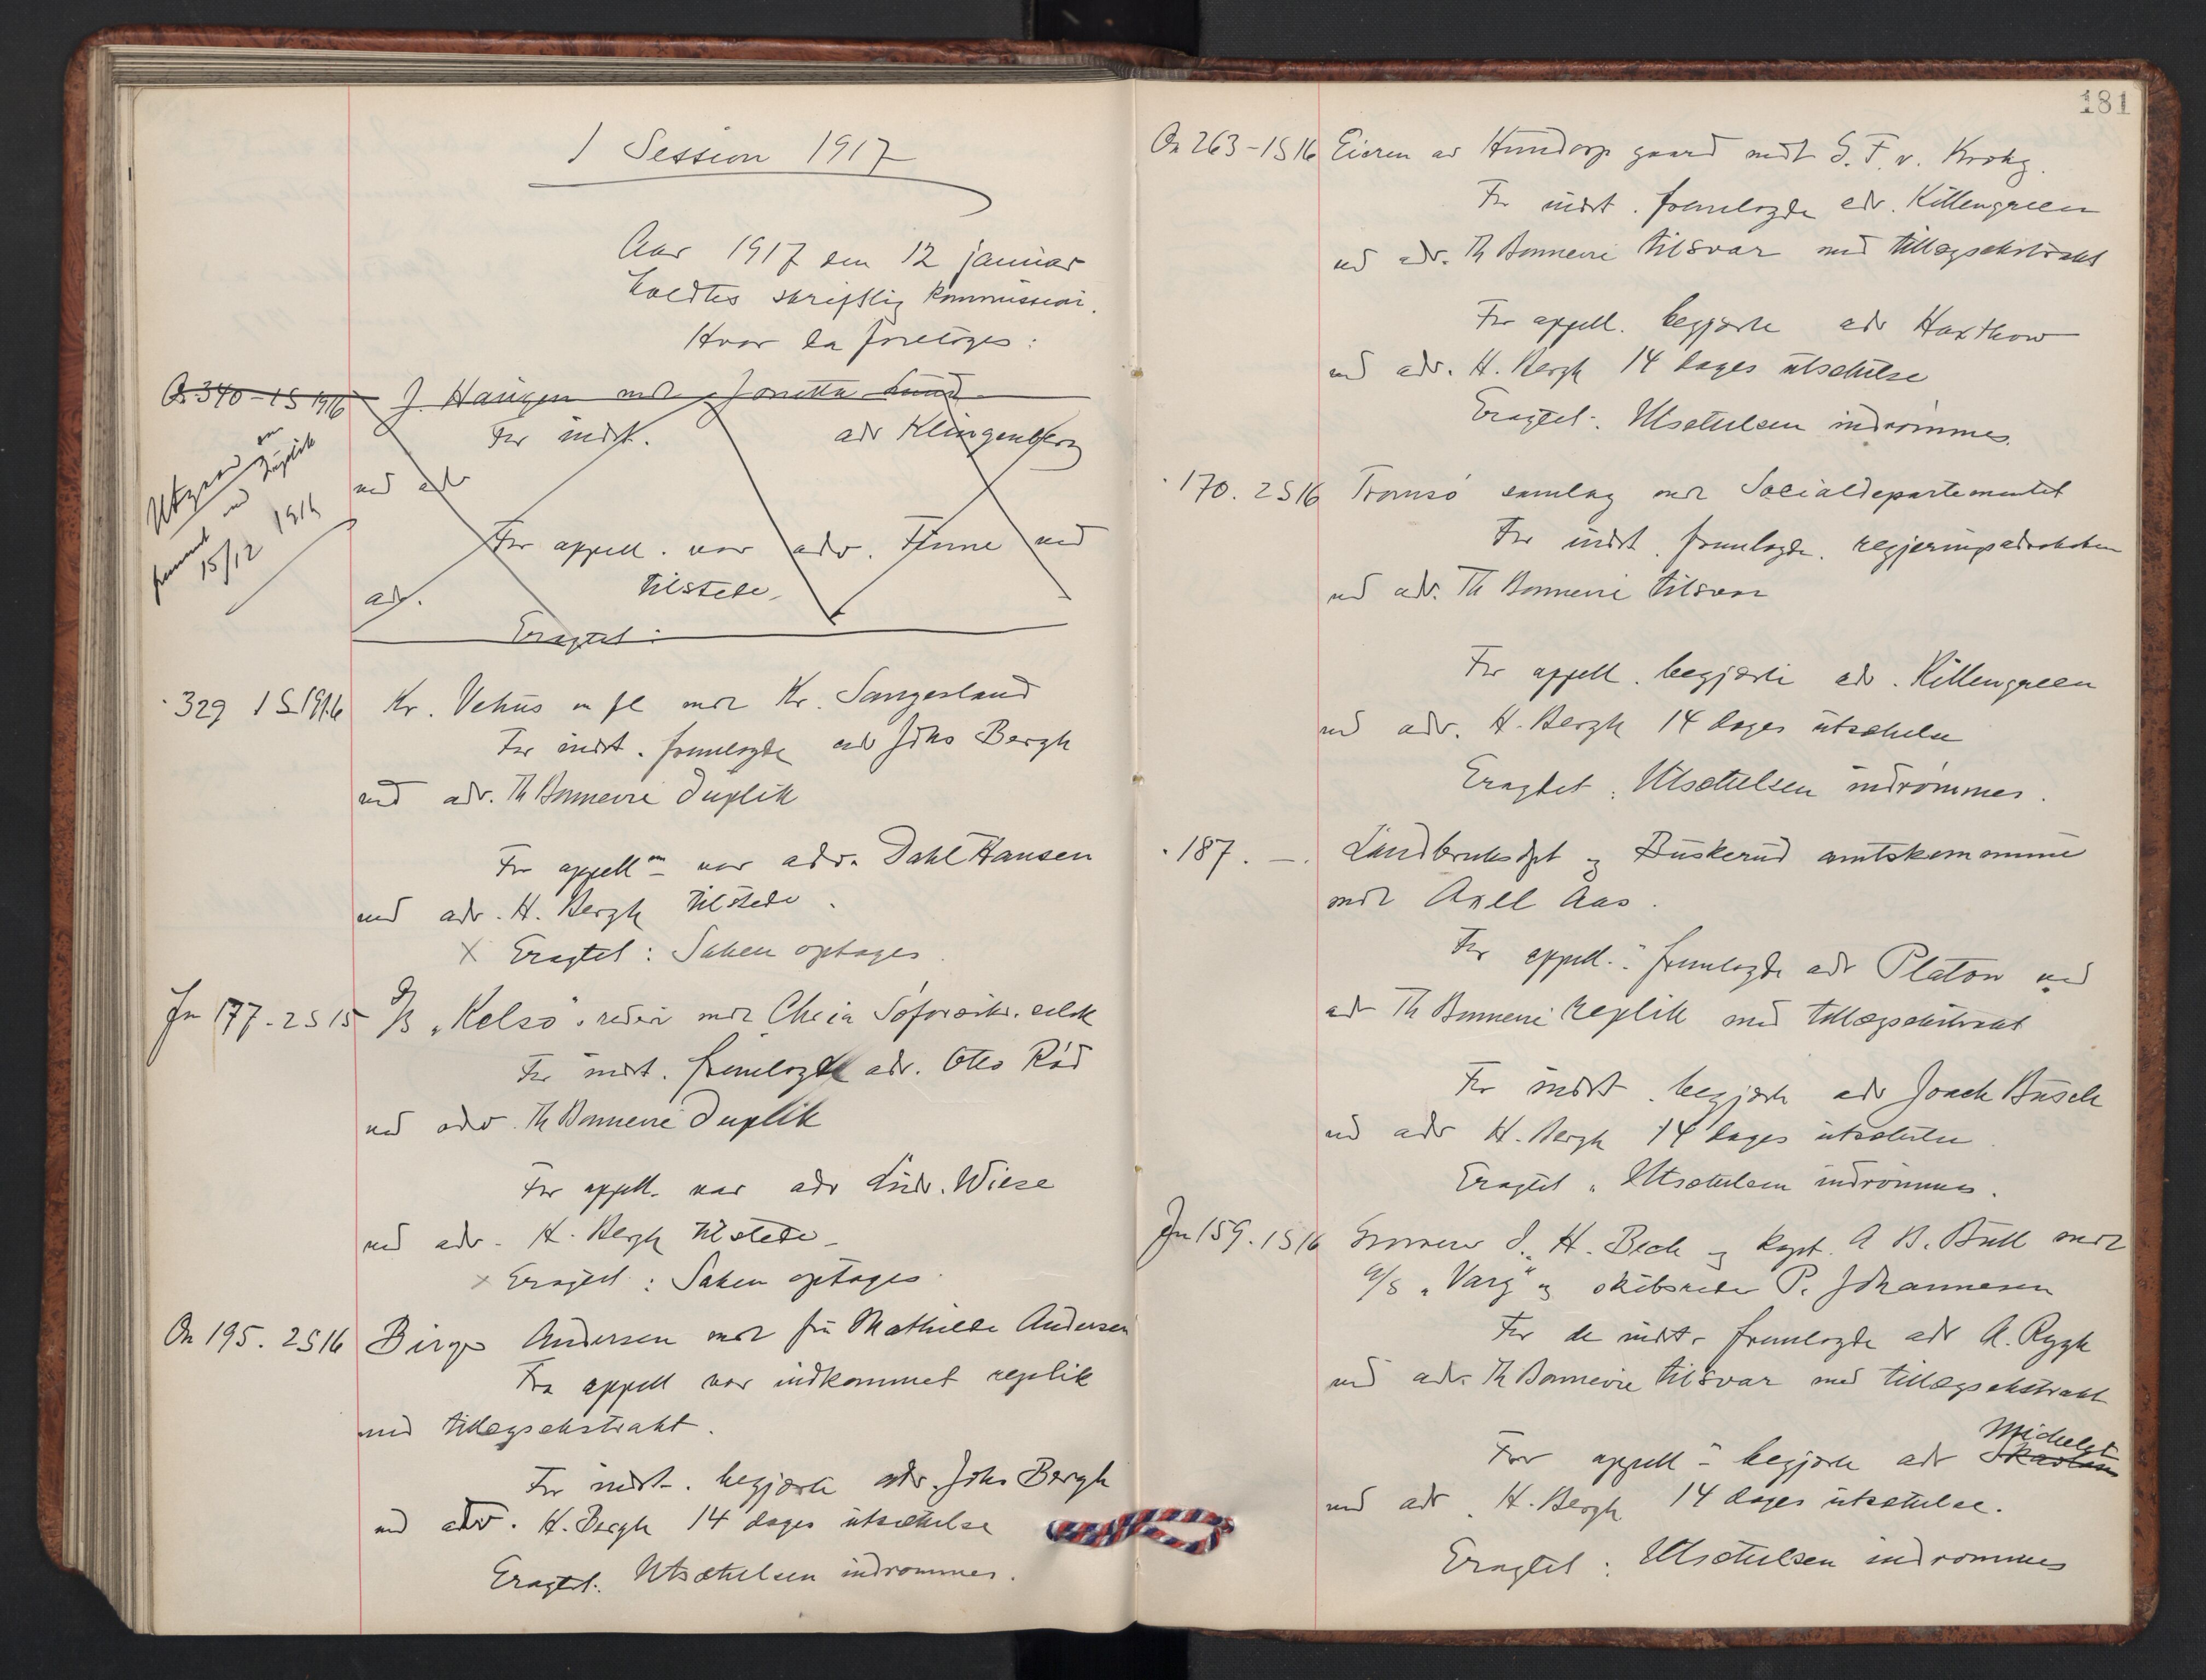 1 Session 1917
Aar 1917 den 12 januar
holdtes skriftlig kommission.
Hvor da foretoges:
On 340 - 1 S 1916 J. Haugen mot Jonetta Lund
For indst. adv Klingenberg
ved adv
For appell. var adv. Thune ved
adv. tilstede
Eragtet:
Utgaar
fremmet ved duplik
15/12 1916
329 1 S 1916 Kr. Vehus m fl mot Kr. Sangesland
For indst. fremlagde adv Johs Bergh
ved adv. Th Bonnevie duplik
For appell.ne var adv. Dahl Hansen
ved adv. H. Bergh tilstede.
x Eragtet: Saken optages.
Jn 177. 2 S 15 D/S "Kelso"s rederi mot Chria Söforsikr. selsk
For indst. fremlagde adv. Otto Röd
ved adv. Th Bonnevie duplik
For appell. var adv Ludv. Wiese
ved adv. H. Bergh tilstede
x Eragtet: Saken optages.
On 195. 2 S 16 Birger Andersen mot fru Mathilde Andersen
Fra appell var indkommet replik
med tillægsekstrakt.
For indst. begjærte adv. Johs Bergh
ved adv. H. Bergh 14 dages utsættelse
Eragtet: Utsættelsen indrømmes.
181
On 263 - 1 S 16 Eieren av Hundorp gaard mot S. F. v. Krohg.
For indst. fremlagde adv. Killengreen
ved adv. Th Bonnevie tilsvar med tillægsekstrakt
For appell. begjærte adv Harthow
ved adv. H. Bergh 14 dages utsættelse
Eragtet: Utsættelsen indrømmes.
170. 2 S 16 Tromsö samlag mot Socialdepartementet
For indst. fremlagde regjeringsadvokaten
ved adv. Th Bonnevie tilsvar
For appell. begjærte adv. Killengreen
ved adv. H. Bergh 14 dages utsættelse
Eragtet: Utsættelsen indrømmes.
187. — . Landbruksdpt og Buskerud amtskommune
mot Axel Aas.
For appell.ne fremlagde adv Platou ved
adv Th Bonnevie replik med tillægsekstrakt
For indst. begjærte adv Joach Busch
ved adv H. Bergh 14 dages utsættelse.
Eragtet: Utsættelsen indrømmes.
Jn 159. 1 S 16 Grosserer J. H. Beck og kapt. A B. Bull mot
A/S "Varg" og skibsreder P. Johannesen
For de indst. fremlagde adv A. Rygh
ved adv. Th Bonnevie tilsvar med tillægsekstrakt
For appell.ne begjærte adv Skavlan Michelet
ved adv H. Bergh 14 dages utsættelse.
Eragtet: Utsættelsen indrømmes